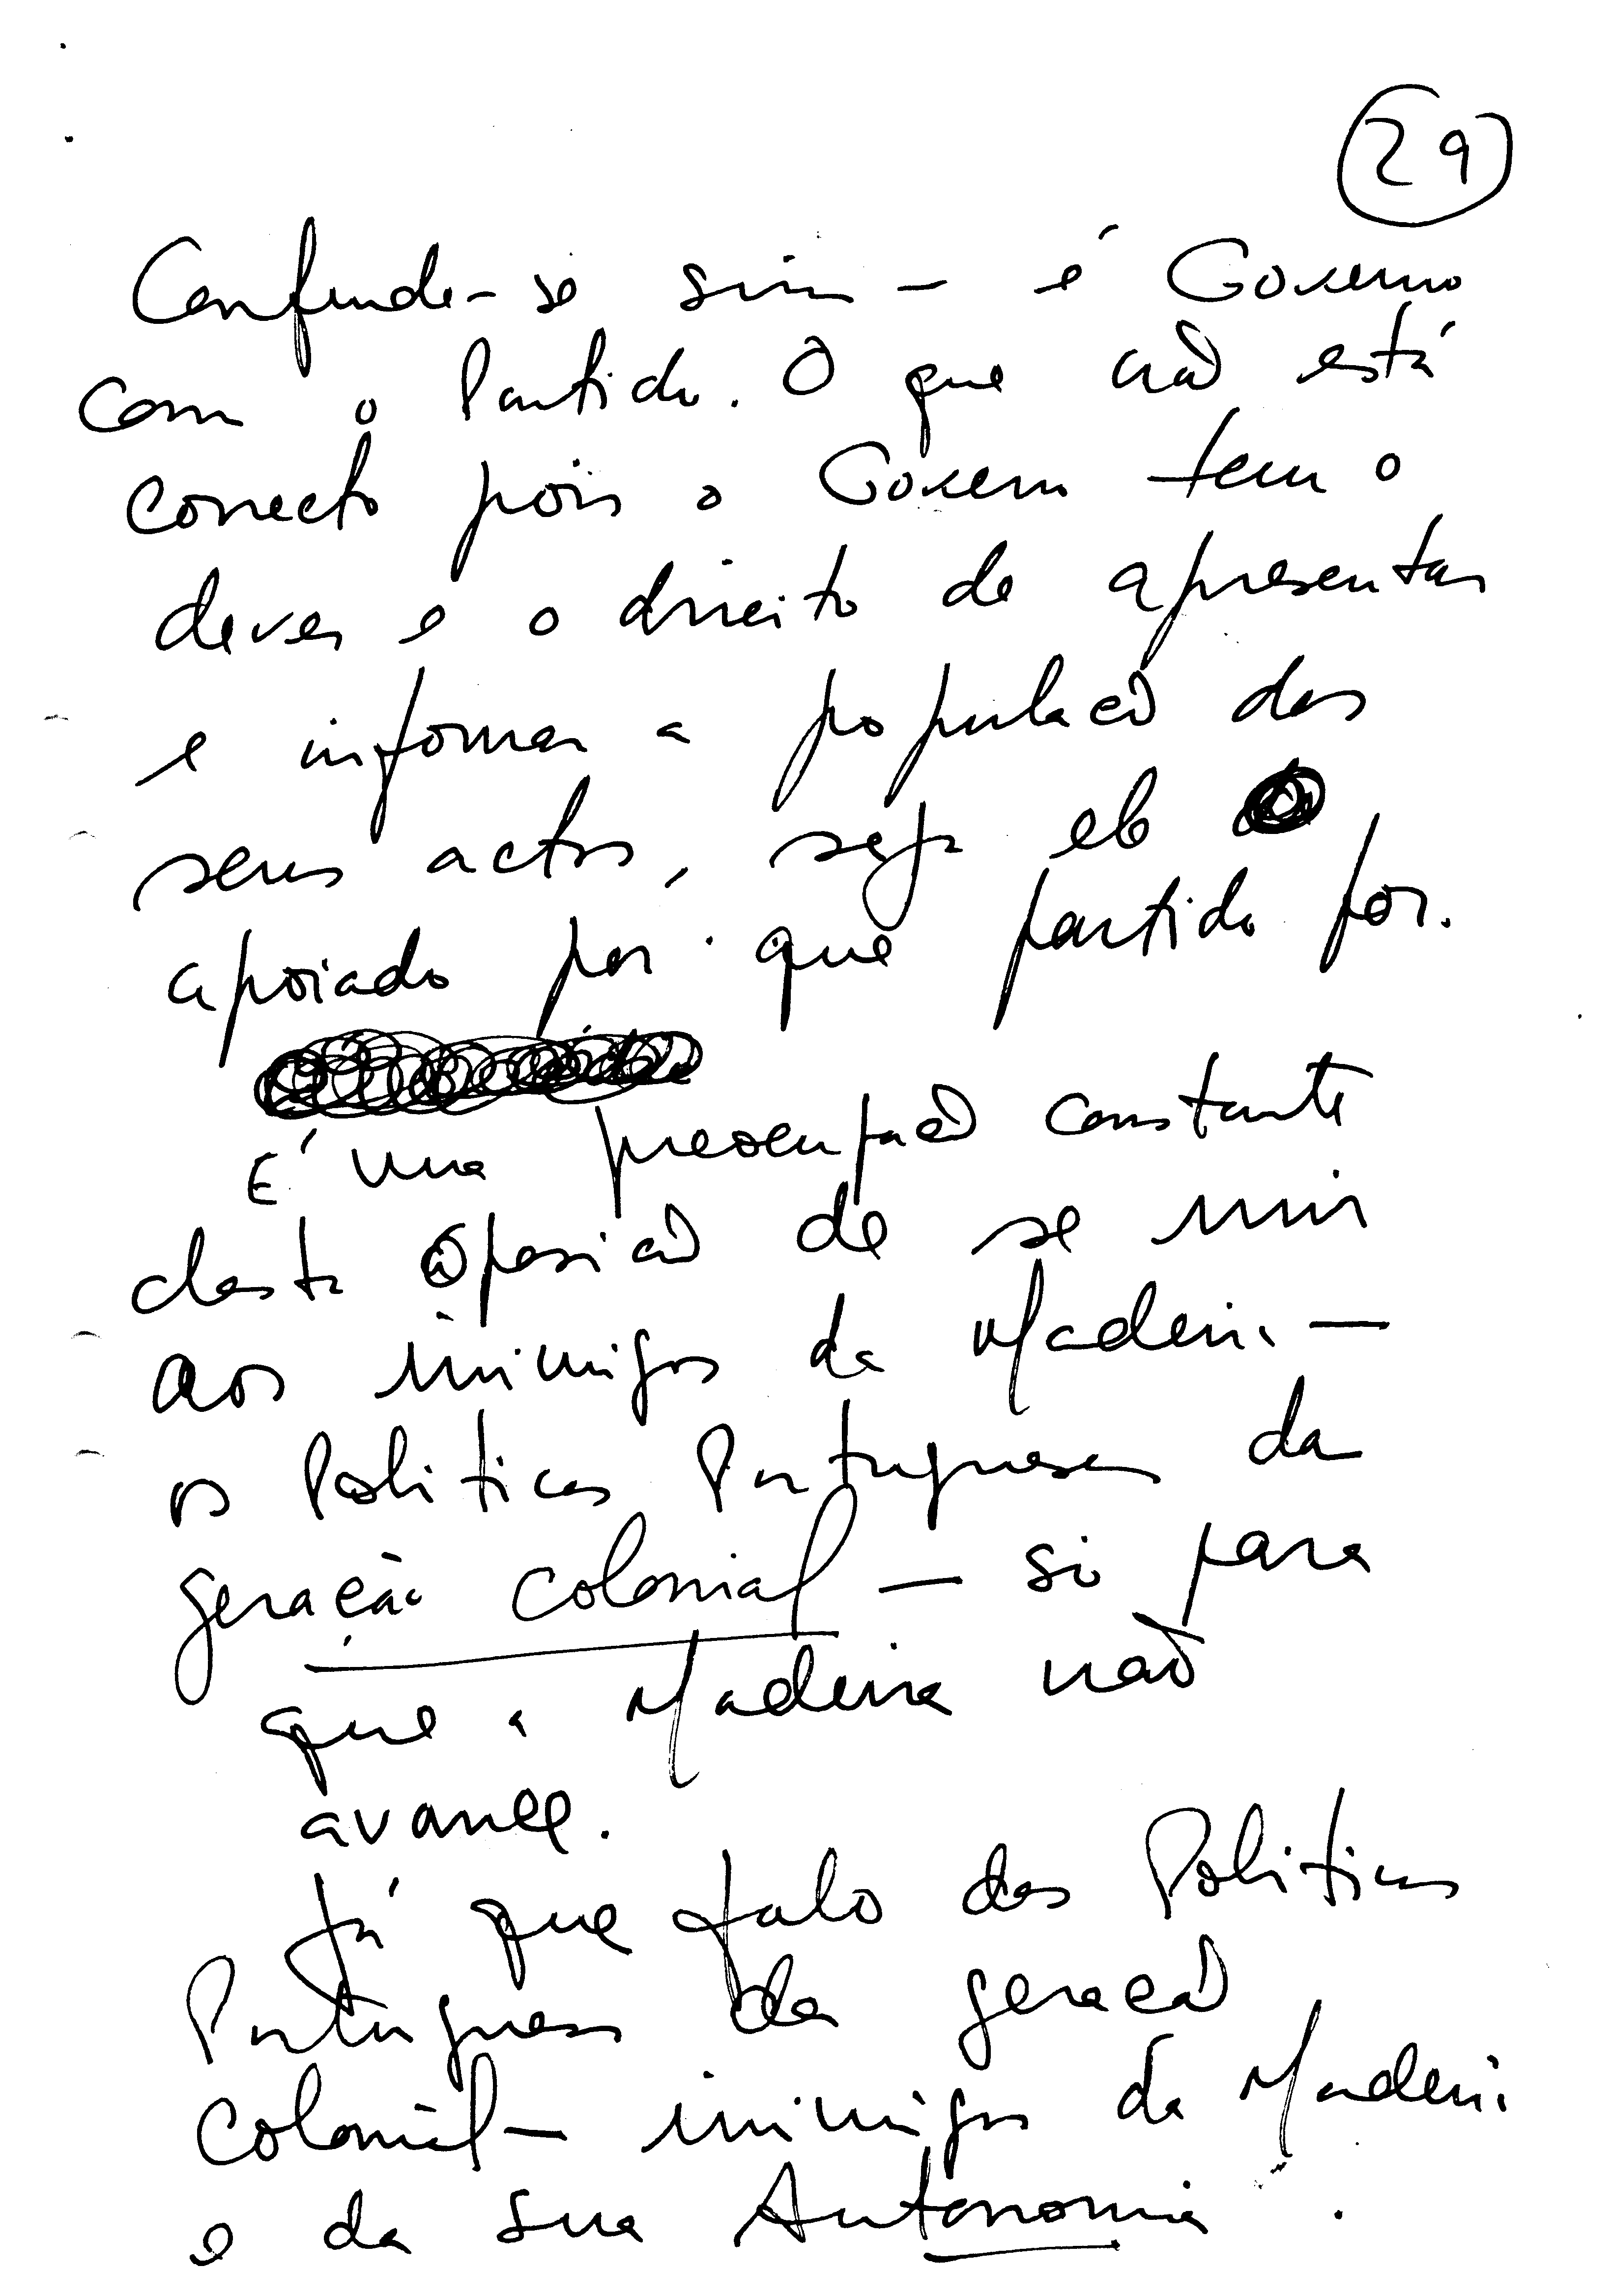 29
Confunde-se sim - é Governo
com o Partido. O que não está
correcto pois o Governo tem o
dever e o direito de apresentar
e informar a população dos
seus actos, seja ele
apoiado por que partido for.
É uma preocupação constante
desta Oposição de se unir
aos inimigos da Madeira —
os Politicos Portugueses da
geração colonial — só para
que a Madeira não
avance.
Já que falo dos Politicos
Portugueses da geração
Colonial — inimigos da Madeira
e da sua Autonomia.